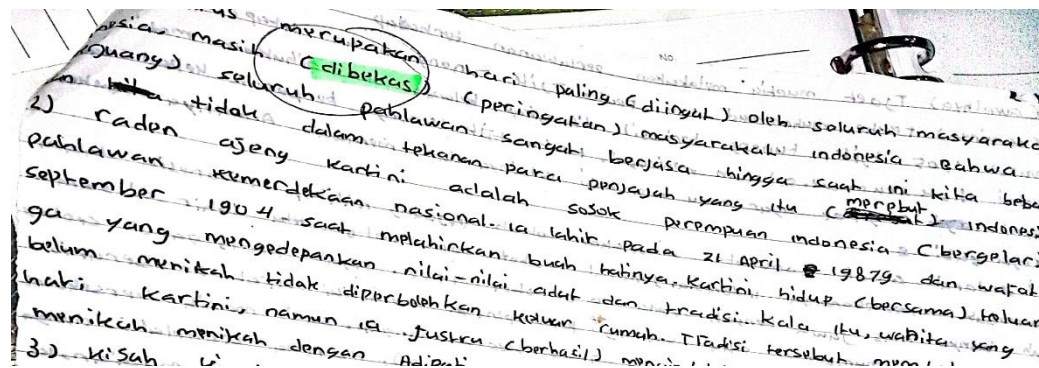 us merupakan hari paling (diingat) oleh seluruh masyaraka
esia, masih (dibekas) (peringatan) masyarakat indonesia Bahwa
juang) seluruh pahlawan sangat berjasa hingga saat ini kita beba
tidak dalam tekanan para penjajah yang itu (merebut) indonesi
2) raden ajeng kartini adalah sosok perempuan indonesia (bergelar)
pahlawan kemerdekaan nasional. ia lahir pada 21 April 19879 dan wafat
september 1904 saat melahirkan buah hatinya. Kartini hidup (bersama) keluar
ga yang mengedepankan nilai-nilai adat dan tradisi. kala itu, wanita yang
belum menikah tidak diperbolehkan keluar rumah. Tradisi tersebut
hati kartini, namun ia justru (berhasil)
menikah menikah dengan Adipati
3) kisah
NO